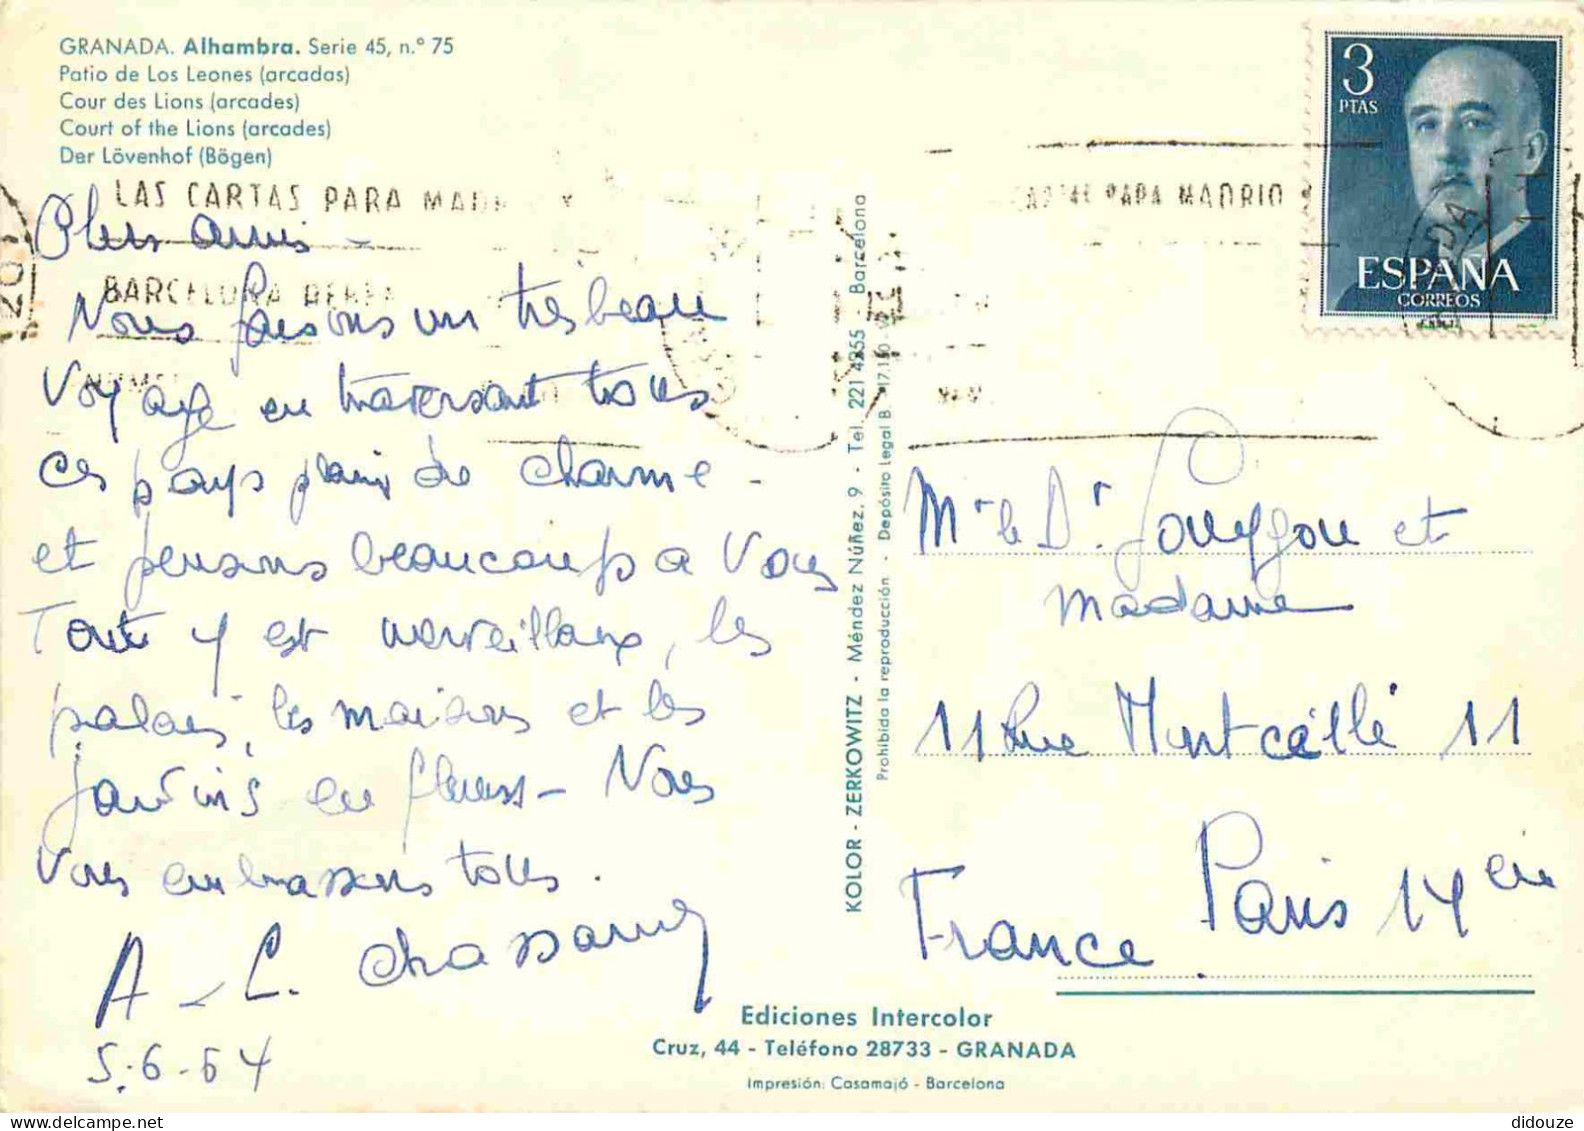 GRANADA. Alhambra. Serie 45, n.º 75
Patio de Los Leones (arcadas)
Cour des Lions (arcades)
Court of the Lions (arcades)
Der Lövenhof (Bögen)
LAS CARTAS PARA MADR Y
BARCELONA AEREA
ARTAS PARA MADRID
3
PTAS
ESPAÑA
CORREOS
Chers amis -
Nous faisons un tres beau
Voyage en traversant tous
ces pays plein de charme -
et pensons beaucoup a Vous
Tout y est merveilleux, les
palais, les maisons et les
jardins en fleurs - Nous
Vous embrassons tous.
A - L.
5-6-64
KOLOR - ZERKOWITZ - Méndez Núñez, 9 - Tel. 221 4255 - Barcelona
Prohibida la reproducción - Depósito Legal B.
Mr le Dr. et
Madame
11 Rue 11
Paris 14 eme
France
Ediciones Intercolor
Cruz, 44 - Teléfono 28733 - GRANADA
Impresión: Casamajó - Barcelona
didouze